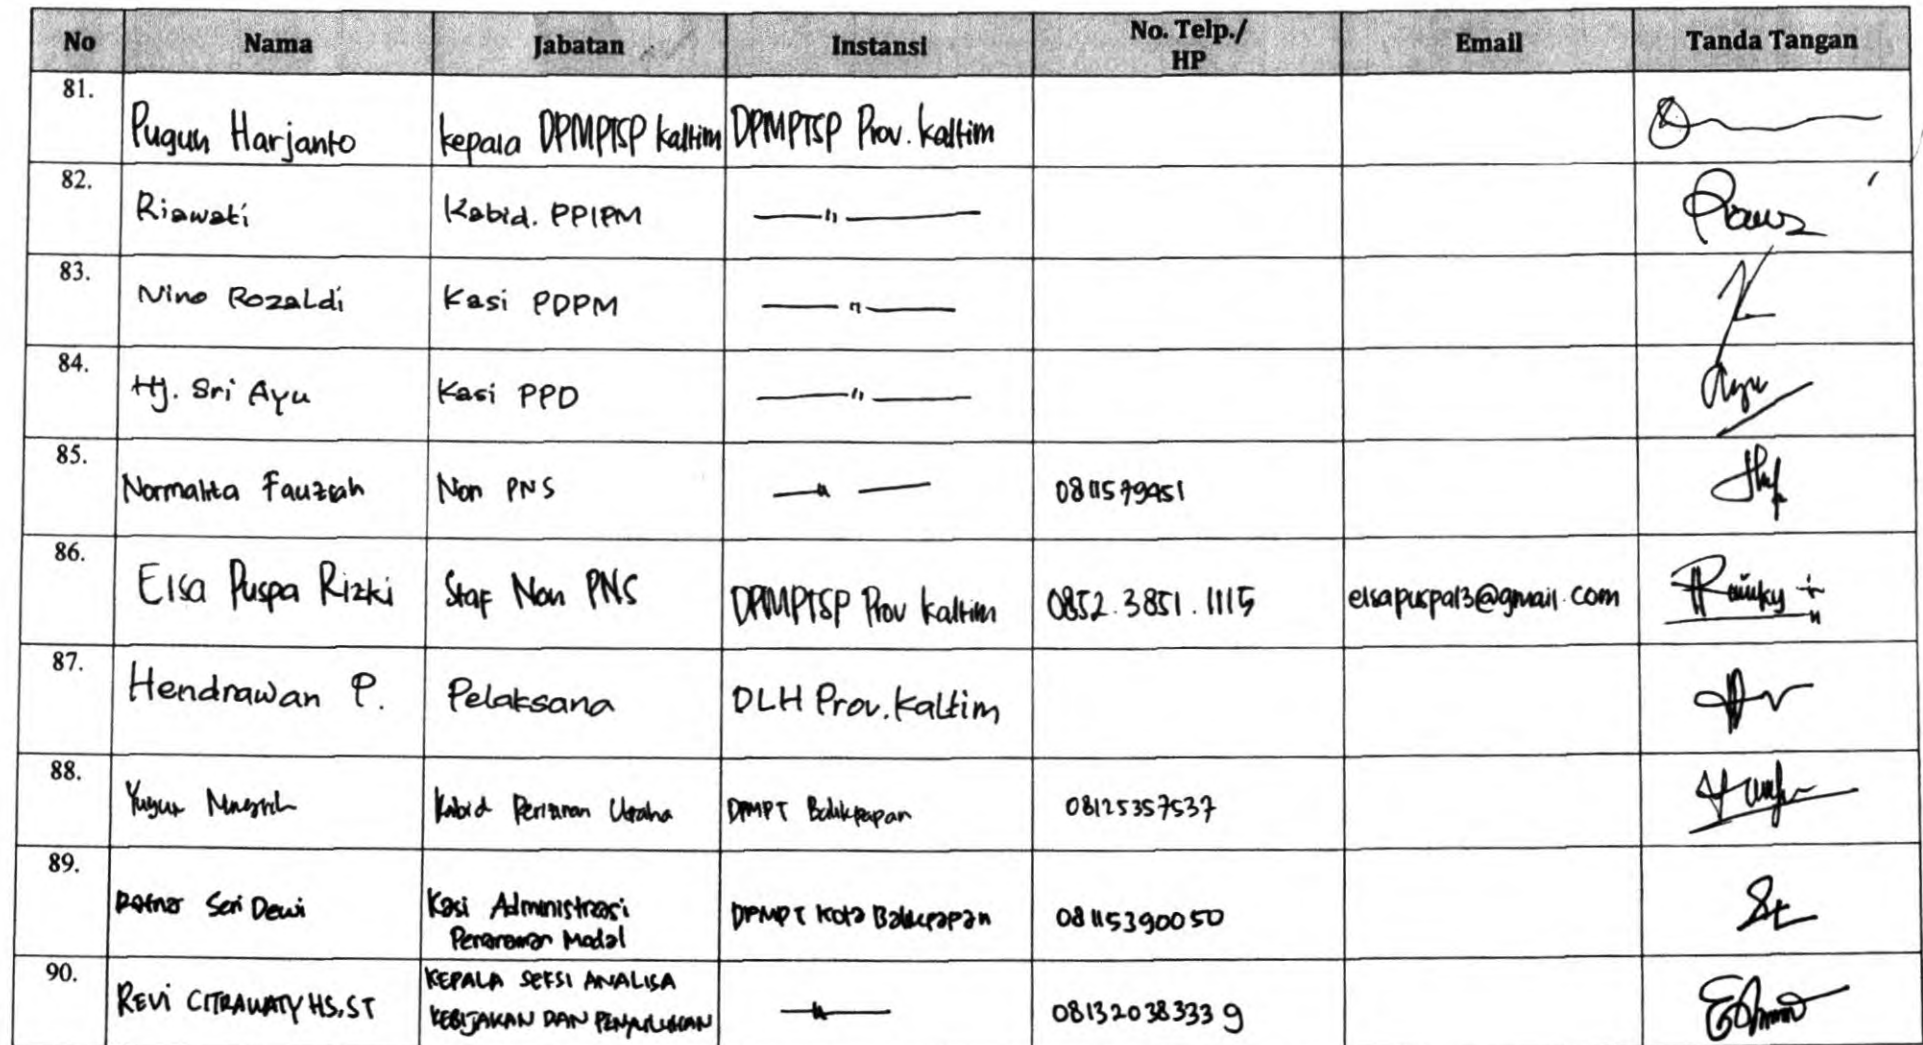 No Nama Jabatan Instansi No. Telp./ HP Email Tanda Tangan
81. Puguh Harjanto kepala DPMPTSP kaltim DPMPTSP Prov. kaltim
82. Riawati Kabid. PPIPM —〃—
83. Nino Rozaldi Kasi PDPM —〃—
84. Hj. Sri Ayu Kasi PPD —〃—
85. Normalita Fauziah Non PNS —〃— 0811579451
86. Elsa Puspa Rizki Staf Non PNS DPMPTSP Prov kaltim 0852.3851.1115 elsapuspa13@gmail.com
87. Hendrawan P. Pelaksana DLH Prov. Kaltim
88. Kabid Perizinan Usaha DPMPT Balikpapan 08125357537
89. Ratna Sari Dewi Kasi Administrasi DPMPT Kota Balikpapan 08115390050
Penanaman Modal
90. REVI CITRAWATY HS, ST KEPALA SEKSI ANALISA —〃— 081320383339
KEBIJAKAN DAN PENYULUHAN